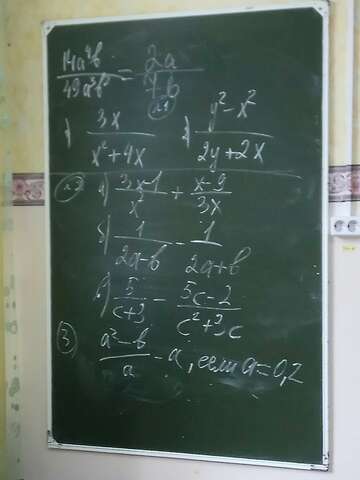 14a⁴b/49a³b² = 2a/7b
№1
б) 3x/(x²+4x) в) (y²-x²)/(2y+2x)
№2 а) (3x-1)/x² + (x-9)/3x
б) 1/(2a-b) - 1/(2a+b)
в) 5/(c+3) - (5c-2)/(c²+3c)
3) (a²-b)/a - a, если a=0,2